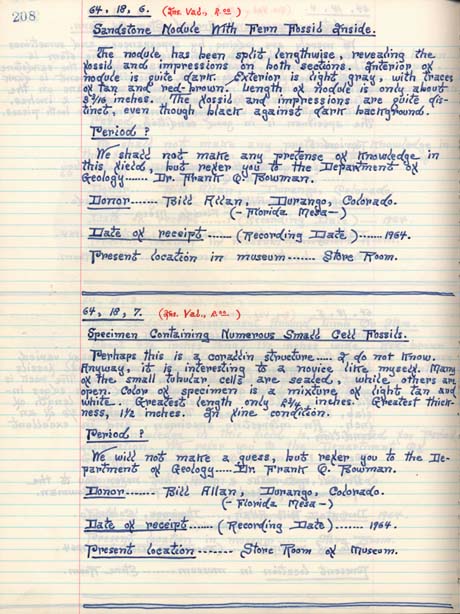 208
64, 18, 6. (Ins. Val., 2.00)
Sandstone Nodule With Fern Fossil Inside.
The nodule has been split lengthwise, revealing the
fossil and impressions on both sections. Interior of
nodule is quite dark. Exterior is light gray, with traces
of tan and red-brown. Length of nodule is only about
inches. The fossil and impressions are quite dis-
tinct, even though black against dark background.
Period ?
We shall not make any pretense of knowledge in
this field, but refer you to the Department of
Geology...... Dr. Frank Q. Bowman.
Donor....... Bill Allan, Durango, Colorado.
(- Florida Mesa -)
Date of receipt ...... (Recording Date)...... 1964.
Present location in museum...... Store Room.
64, 18, 7. (Ins. Val., .00)
Specimen Containing Numerous Small Cell Fossils.
Perhaps this is a corallin structure.... I do not know.
Anyway, it is interesting to a novice like myself. Many
of the small tubular cells are sealed, while others are
open. Color of specimen is a mixture of light tan and
white. Greatest length only inches. Greatest thick-
ness, 1½ inches. In fine condition.
Period ?
We will not make a guess, but refer you to the De-
partment of Geology.....Dr. Frank Q. Bowman.
Donor...... Bill Allan, Durango, Colorado.
(- Florida Mesa -)
Date of receipt..... (Recording Date)....... 1964.
Present location....... Store Room of Museum.